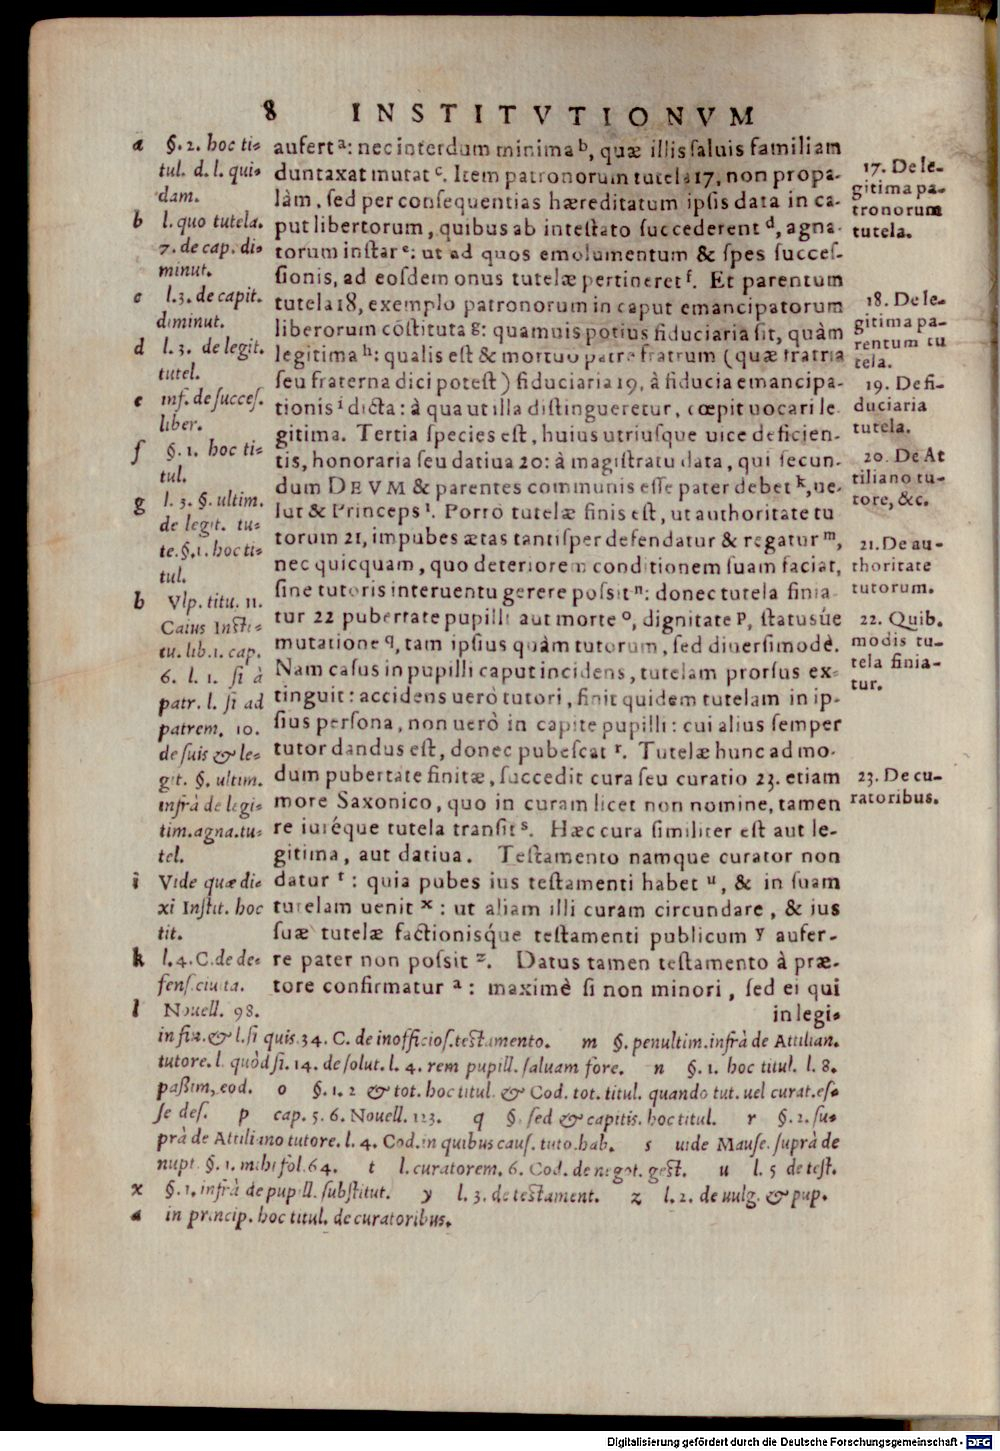 8 INSTITVTIONVM
a §. 2. hoc ti=
tul. d. l. qui=
dam.
b l. quo tutela.
7. de cap. di=
minut.
c l. 3. de capit.
diminut.
d l. 3. de legit.
tutel.
e inf. de succes.
liber.
f §. 1. hoc ti=
tul.
g l. 3. §. ultim.
de legit. tu=
te. §. 1. hoc ti=
tul.
h Vlp. titu. 11.
Caius Insti=
tu. lib. 1. cap.
6. l. 1. si à
patr. l. si ad
patrem. 10.
de suis & le=
git. §. ultim.
infrà de legi=
tim. agna. tu=
tel.
i Vide quæ di=
xi Instit. hoc
tit.
k l. 4. C. de de=
fens. ciuita.
l Nouell. 98.
aufert a: nec interdum minima b, quæ illis saluis familiam
duntaxat mutat c. Item patronorum tutela 17, non propa-
làm, sed per consequentias hæreditatum ipsis data in ca-
put libertorum, quibus ab intestato succederent d, agna-
torum instar e: ut ad quos emolumentum & spes succes-
sionis, ad eosdem onus tutelæ pertineret f. Et parentum
tutela 18, exemplo patronorum in caput emancipatorum
liberorum cõstituta g: quamuis potius fiduciaria sit, quàm
legitima h: qualis est & mortuo patre fratrum (quæ fratria
seu fraterna dici potest) fiduciaria 19, à fiducia emancipa-
tionis i dicta: à qua ut illa distingueretur, cœpit uocari le-
gitima. Tertia species est, huius utriusque uice deficien-
tis, honoraria seu datiua 20: à magistratu data, qui secun-
dum DEVM & parentes communis esse pater debet k, ue-
lut & Princeps l. Porrò tutelæ finis est, ut authoritate tu
torum 21, impubes ætas tantisper defendatur & regatur m,
nec quicquam, quo deteriorem conditionem suam faciat,
sine tutoris interuentu gerere possit n: donec tutela finia-
tur 22 pubertate pupilli aut morte o, dignitate p, statusúe
mutatione q, tam ipsius quàm tutorum, sed diuersimodè.
Nam casus in pupilli caput incidens, tutelam prorsus ex-
tinguit: accidens uerò tutori, finit quidem tutelam in ip-
sius persona, non uerò in capite pupilli: cui alius semper
tutor dandus est, donec pubescat r. Tutelæ hunc ad mo-
dum pubertate finitæ, succedit cura seu curatio 23. etiam
more Saxonico, quo in curam licet non nomine, tamen
re iuréque tutela transit s. Hæc cura similiter est aut le-
gitima, aut datiua. Testamento namque curator non
datur t: quia pubes ius testamenti habet u, & in suam
tutelam uenit x: ut aliam illi curam circundare, & ius
suæ tutelæ factionisq́ue testamenti publicum y aufer-
re pater non possit z. Datus tamen testamento à præ-
tore confirmatur a: maximè si non minori, sed ei qui
in legi=
17. De le-
gitima pa-
tronorum
tutela.
18. De le-
gitima pa-
rentum tu
tela.
19. De fi-
duciaria
tutela.
20. De At
tiliano tu-
tore, &c.
21. De au-
thoritate
tutorum.
22. Quib.
modis tu-
tela finia-
tur.
23. De cu-
ratoribus.
in fin. & l. si quis. 34. C. de inofficios. testamento. m §. penultim. infrà de Attilian.
tutore. l. quòd si. 14. de solut. l. 4. rem pupill. saluam fore. n §. 1. hoc titul. l. 8.
paßim, eod. o §. 1. 2 & tot. hoc titul. & Cod. tot. titul. quando tut. uel curat. es=
se des. p cap. 5. 6. Nouell. 123. q §. sed & capitis. hoc titul. r §. 2. su=
prà de Attiliano tutore. l. 4. Cod. in quibus caus. tuto. hab. s uide Mause. suprà de
nupt. §. 1. mihi fol. 64. t l. curatorem. 6. Cod. de negot. gest. u l. 5 de test.
x §. 1. infrà de pupill. substitut. y l. 3. de testament. z l. 2. de uulg. & pup.
a in princip. hoc titul. de curatoribus.
Digitalisierung gefördert durch die Deutsche Forschungsgemeinschaft - DFG